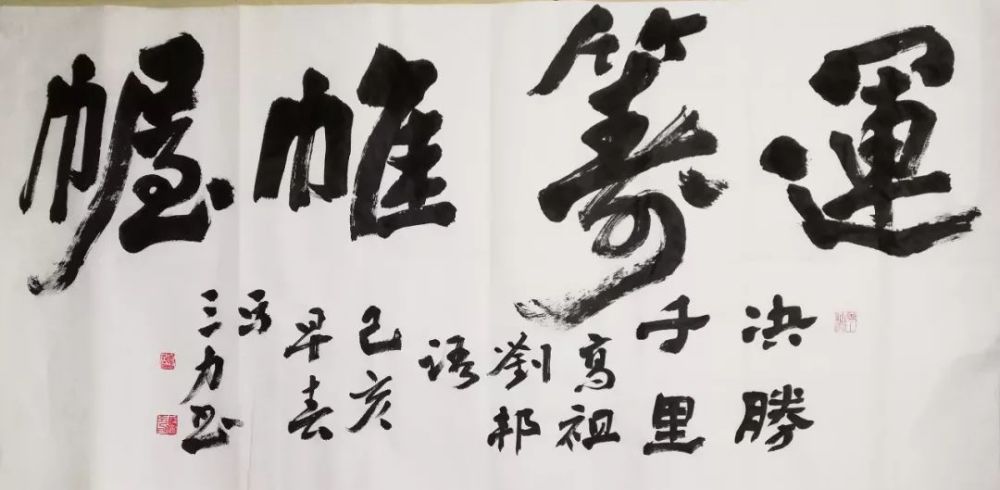 運籌帷幄
决勝
千里
高祖
劉邦
語
己亥
早春
三力书